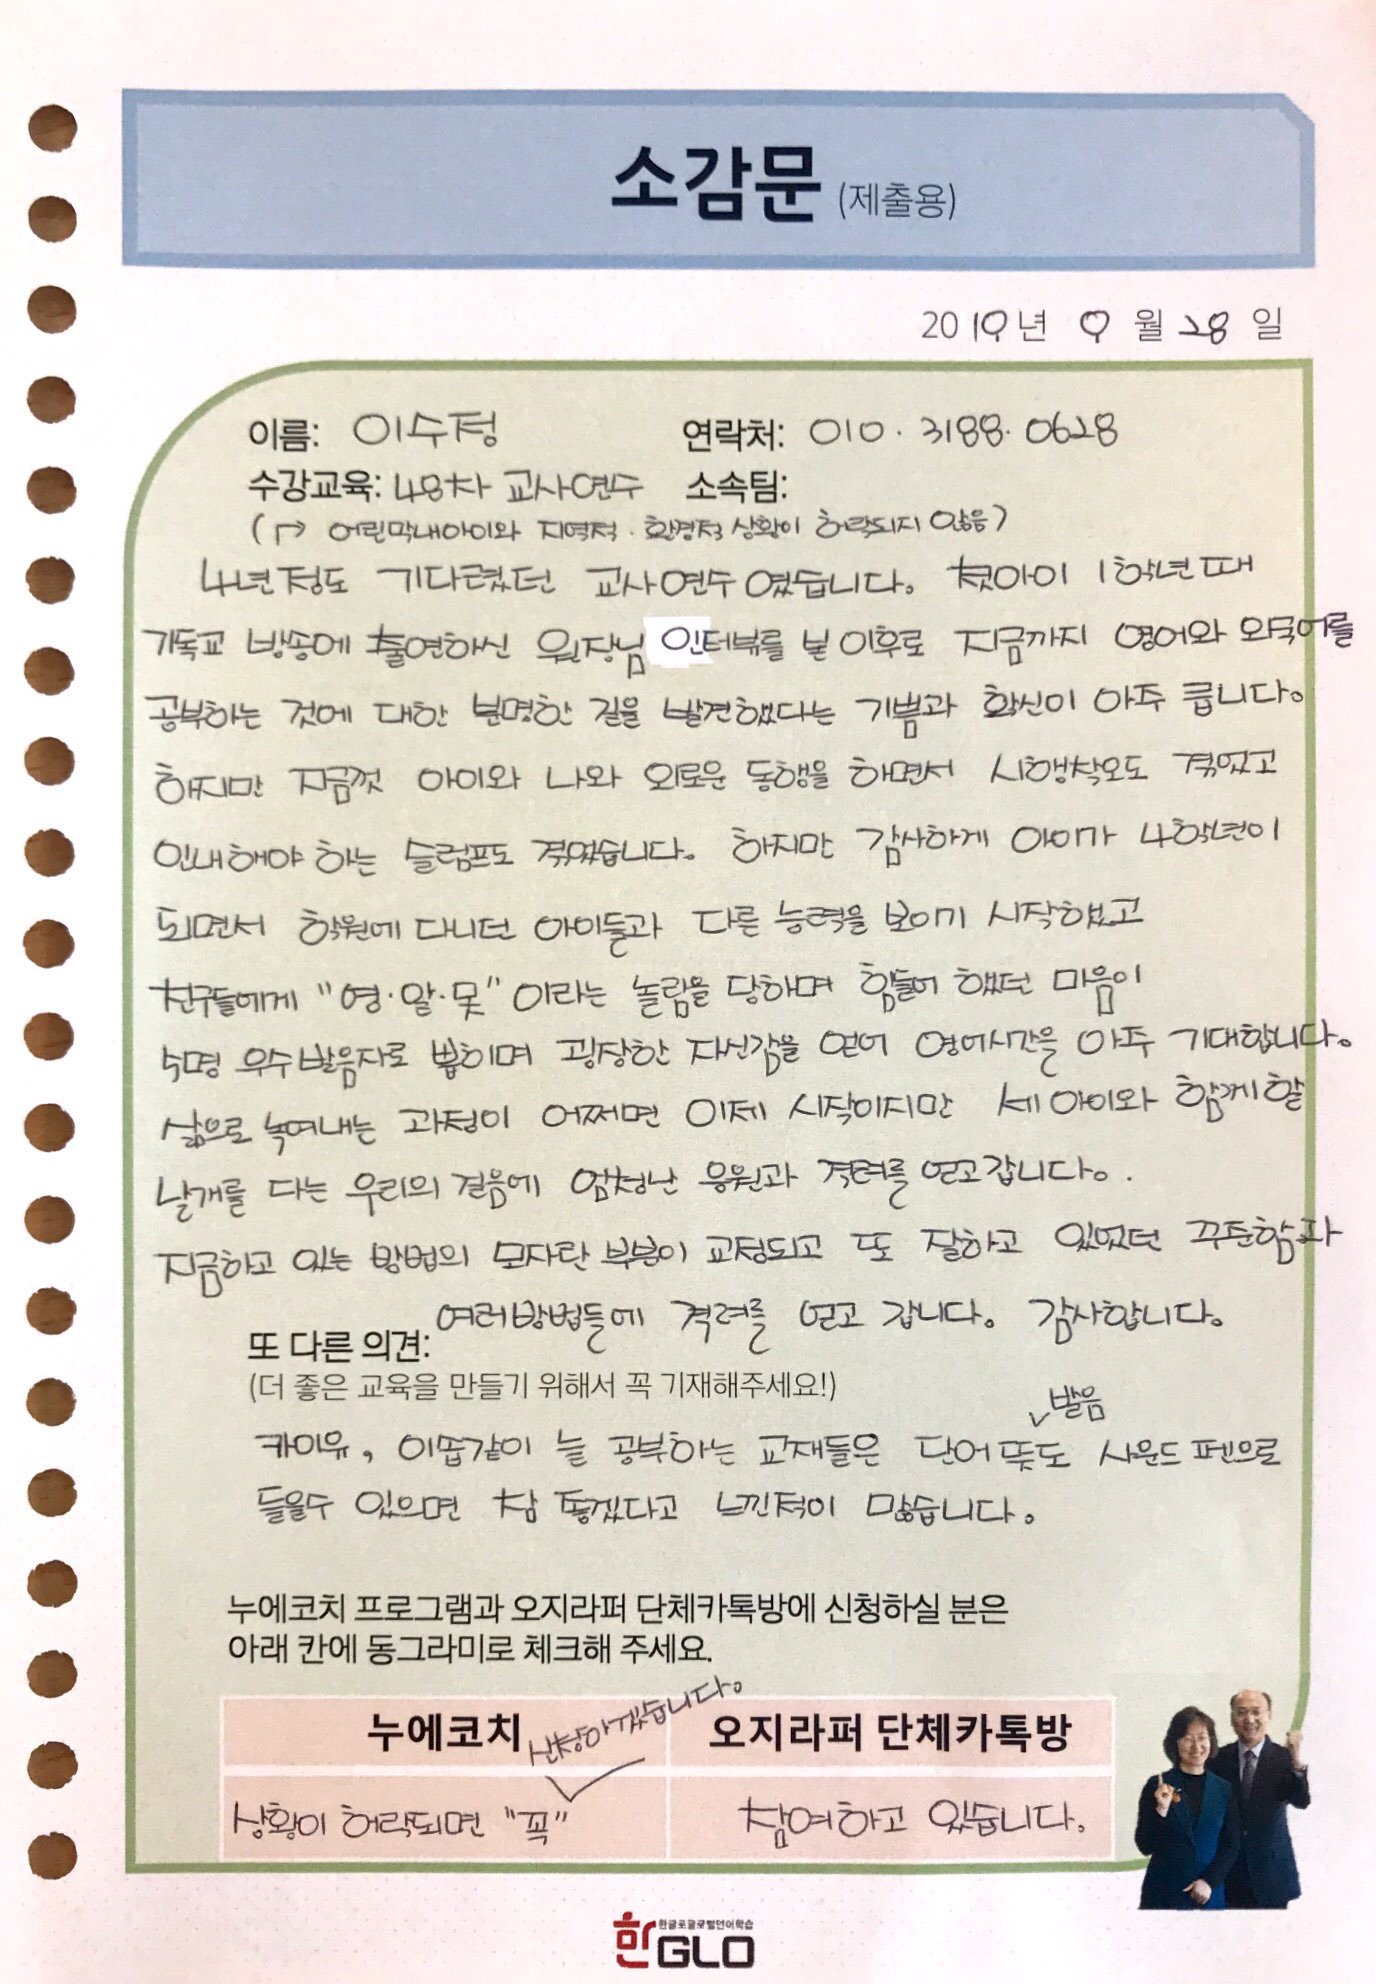 소감문 (제출용)
2019년 9월 28일
이름: 이수정 연락처: 010. 3188. 0628
수강교육: 48차 교사연수 소속팀:
(↱ 어린막내아이와 지역적·환경적 상황이 허락되지 않음)
4년정도 기다렸던 교사연수였습니다. 첫아이 1학년때
기독교 방송에 출연하신 원장님 인터뷰를 본 이후로 지금까지 영어와 외국어를
공부하는 것에 대한 분명한 길을 발견했다는 기쁨과 확신이 아주 큽니다.
하지만 지금껏 아이와 나와 외로운 동행을 하면서 시행착오도 겪었고
인내해야 하는 슬럼프도 겪었습니다. 하지만 감사하게 아이가 4학년이
되면서 학원에 다니던 아이들과 다른 능력을 보이기 시작했고
친구들에게 "영·알·못" 이라는 놀림을 당하며 힘들어 했던 마음이
5명 우수발음자로 뽑히며 굉장한 자신감을 얻어 영어시간을 아주 기대합니다.
삶으로 녹여내는 과정이 어쩌면 이제 시작이지만 세 아이와 함께 할
날개를 다는 우리의 걸음에 엄청난 응원과 격려를 얻고갑니다..
지금하고 있는 방법의 모자란 부분이 교정되고 또 잘하고 있었던 꾸준함과
여러방법들에 격려를 얻고 갑니다. 감사합니다.
또 다른 의견:
(더 좋은 교육을 만들기 위해서 꼭 기재해주세요!)
발음
까이유, 이솝같이 늘 공부하는 교재들은 단어 뜻도 사운드 펜으로
들을수 있으면 참 좋겠다고 느낀적이 많습니다.
누에코치 프로그램과 오지라퍼 단체카톡방에 신청하실 분은
아래 칸에 동그라미로 체크해 주세요.
누에코치 오지라퍼 단체카톡방
신청하겠습니다.
상황이 허락되면 "꼭" 참여하고 있습니다.
한글로글로벌언어학습
한GLO